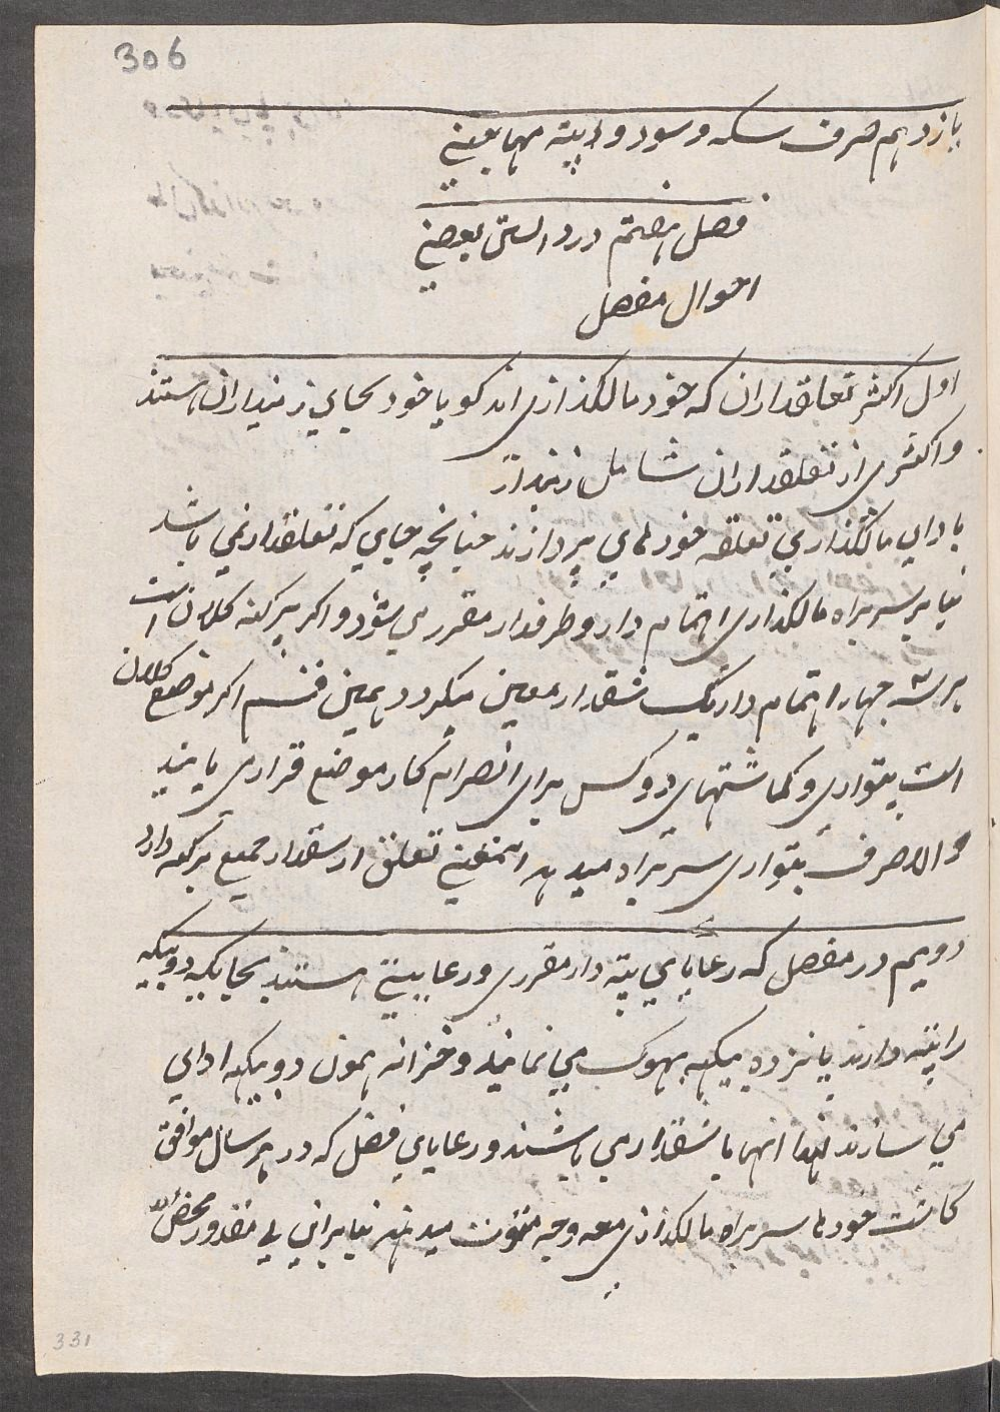 306
یازدهم صرف سکه و سود و لپیته مهایعنے
فصل هفتم در دانستن بعضے
احوال مفصل
اول اکثر تعلقداران که خود مالگذاری اند گویا خود بجای زمینداران هستند
و اکثری از تعلقداران شامل زمیندار
بادای مالگذاری تعلقه خودهای پردازند چنانچه جای که تعلقدار نمی باشد
بنابر سربراه مالگذاری اهتمام دار و طرفدار مقرر می شود و اگر پرگنه کلان است
بر سه چهار اهتمام دار یک شقدار معین میگردد همین قسم اگر موضع کلان
است پتواری و گماشتهای دو کس برای انصرام کار موضع قرار می یابند
والا صرف پتواری سربراه میدهد اینمعنے تعلق از شقدار جمیع پرگنه دارد
دویم در مفصل که رعایای پته دار مقرری و رعایتی هستند بجایکه دو بیگه
را پته دارند پانزده بیگهه بهوک می نمایند و خزانه همون دو بیگهه ادای
می سازند لهذا انها با شقدار می باشند و رعایای فصل که در هر سال موافق
کاشت خودها سربراه مالگذاری معه وجه متفوت میدهند بنابران بی مقدور محض اند
331